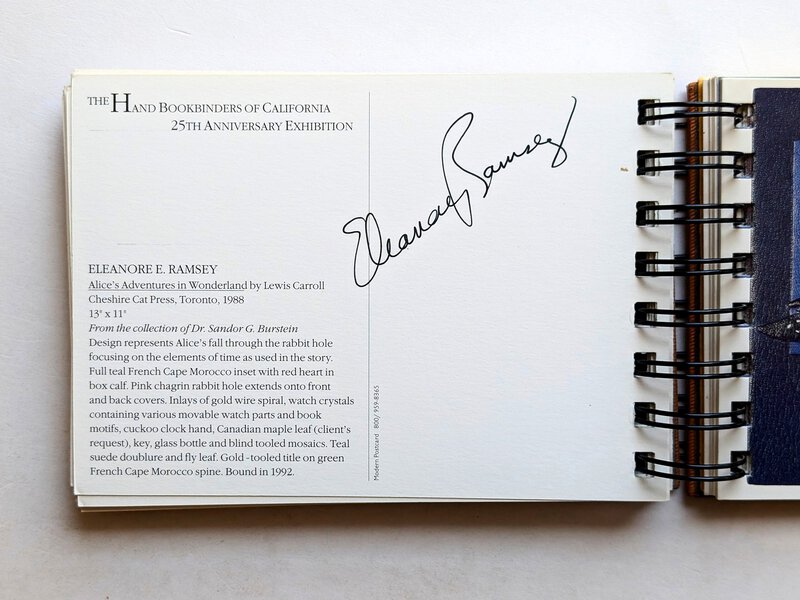 THE HAND BOOKBINDERS OF CALIFORNIA
25TH ANNIVERSARY EXHIBITION
Eleanore Ramsey
ELEANORE E. RAMSEY
Alice's Adventures in Wonderland by Lewis Carroll
Cheshire Cat Press, Toronto, 1988
13" x 11"
From the collection of Dr. Sandor G. Burstein
Design represents Alice's fall through the rabbit hole
focusing on the elements of time as used in the story.
Full teal French Cape Morocco inset with red heart in
box calf. Pink chagrin rabbit hole extends onto front
and back covers. Inlays of gold wire spiral, watch crystals
containing various movable watch parts and book
motifs, cuckoo clock hand, Canadian maple leaf (client's
request), key, glass bottle and blind tooled mosaics. Teal
suede doublure and fly leaf. Gold -tooled title on green
French Cape Morocco spine. Bound in 1992.
Modern Postcard 800/ 959-8365